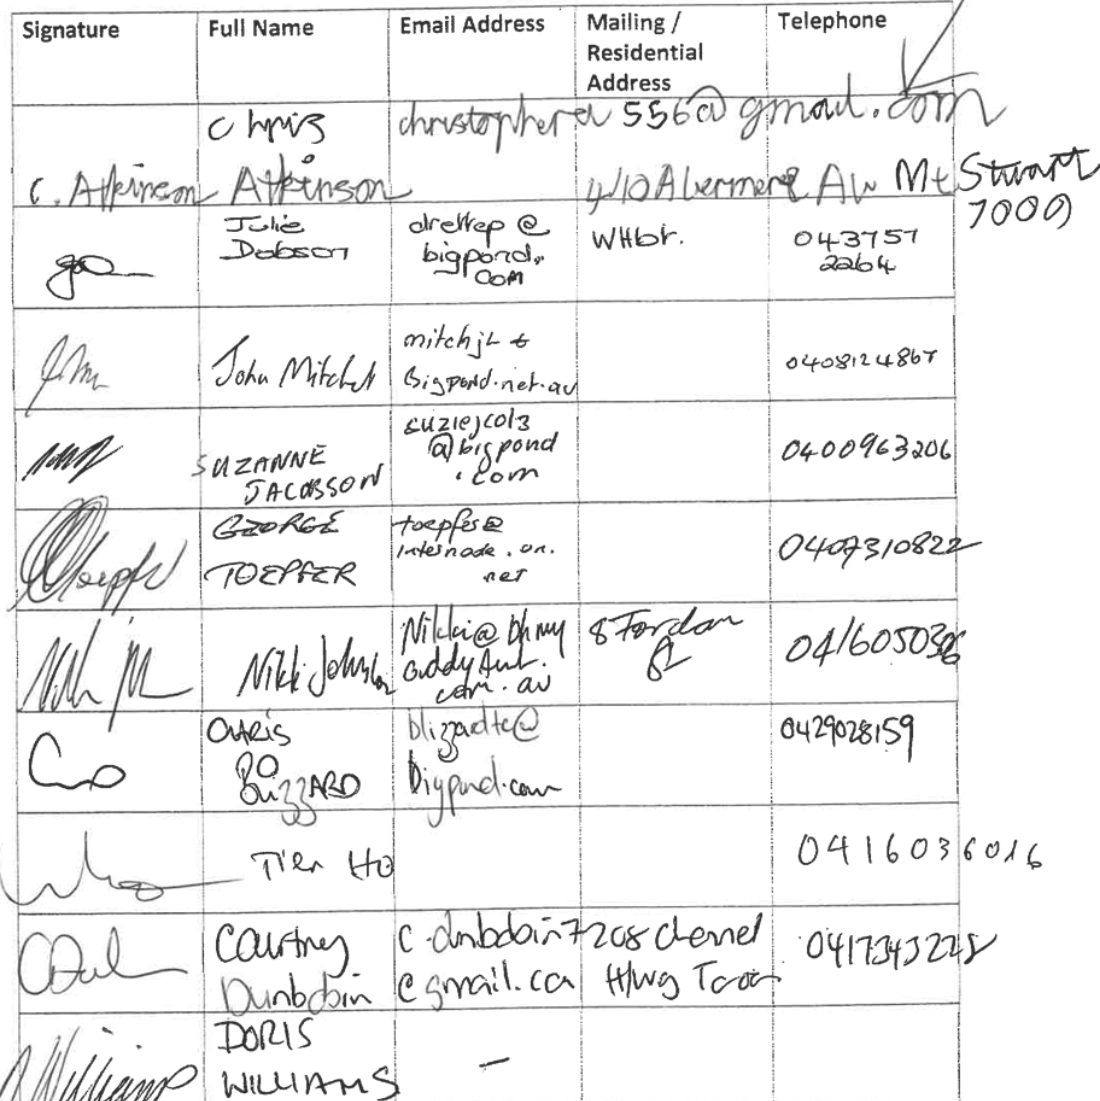 Signature
Full Name
Email Address
Mailing /
Residential
Address
Telephone
Chris
Atkinson
C. Atkinson
christophera556@gmail.com
4/10 Av Mt Stuart
7000
Julie
Dobson
@
bigpond.
com
WHbr.
043757
2264
John Mitchell
mitchjl
Bigpond.net.au
0408124867
SUZANNE
JACOBSON
@bigpond
.com
0400963206
GEORGE
TOEPFER
toepfer@
internode.on.
net
0407310822
Nikki Johnston
Nikki@
com.au
8 Jordan
CHRIS
BLIZZARD
blizzardtc@
bigpond.com
0429028159
Tien Ho
0416036016
Courtney
Dunbabin
@gmail.
208 Channel
H/wy
DORIS
WILLIAMS
Williams
–